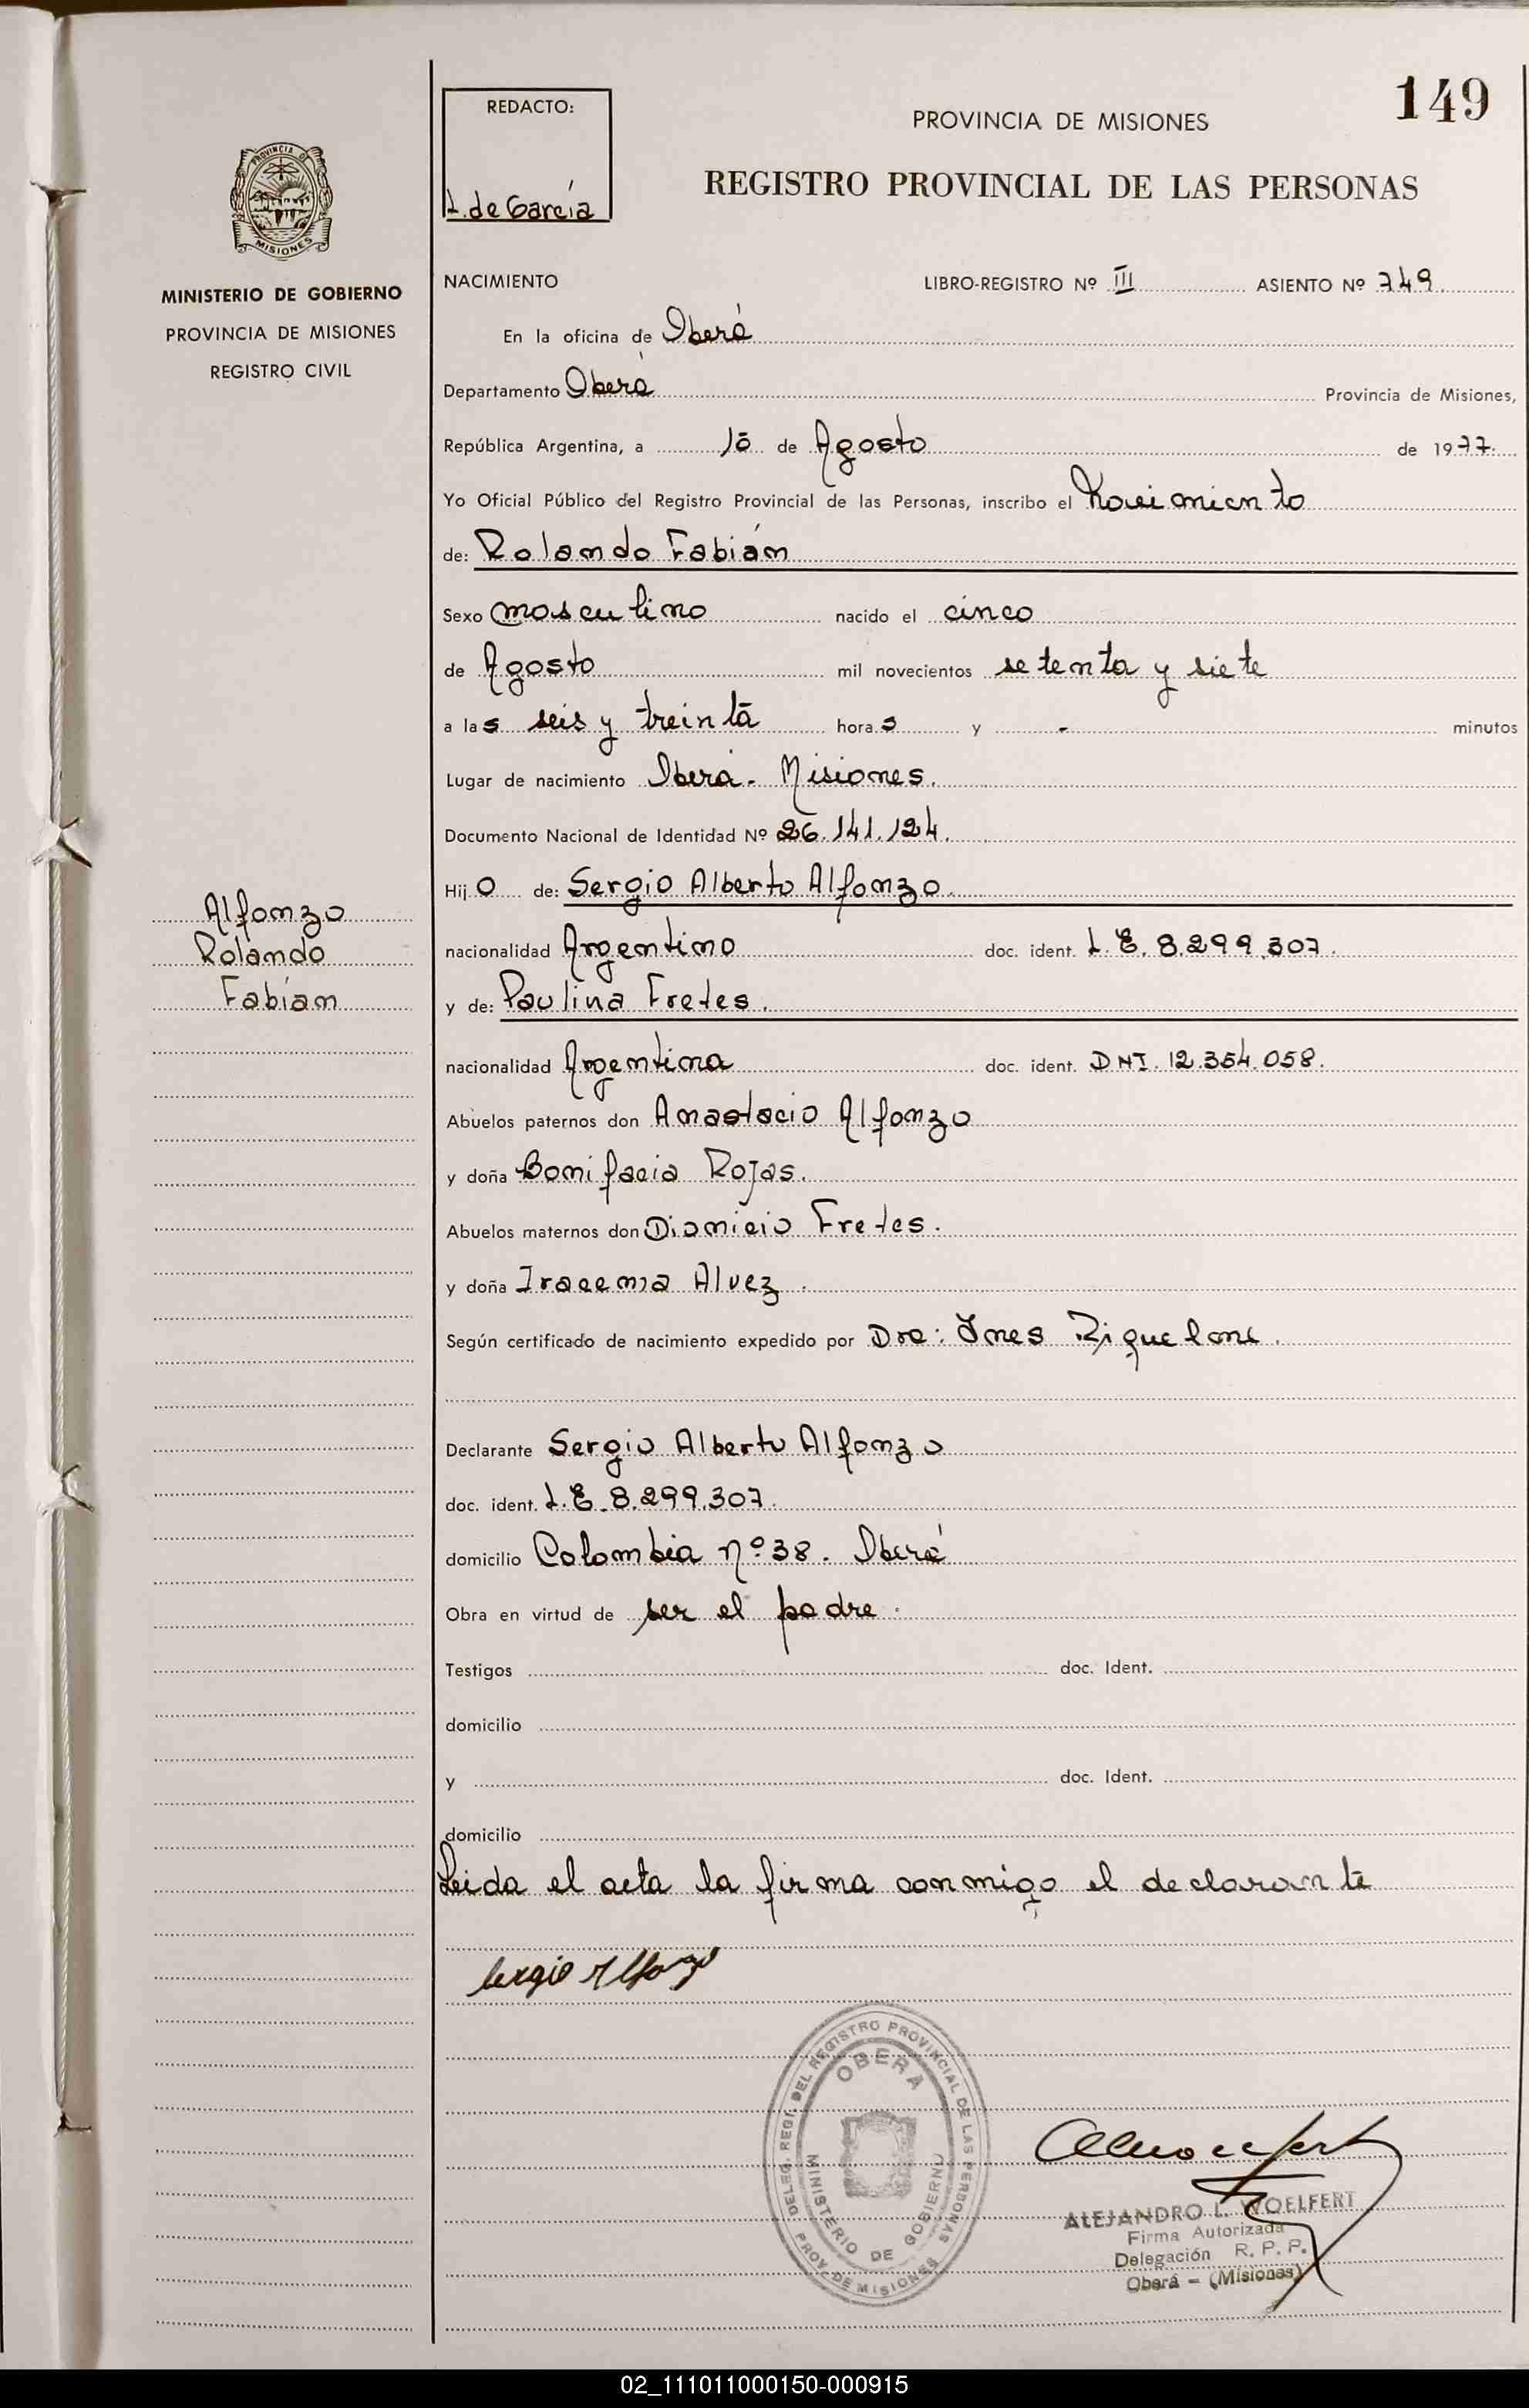 149
REDACTO:
L. de García
PROVINCIA DE MISIONES
REGISTRO PROVINCIAL DE LAS PERSONAS
PROVINCIA DE
MISIONES
MINISTERIO DE GOBIERNO
PROVINCIA DE MISIONES
REGISTRO CIVIL
NACIMIENTO LIBRO-REGISTRO Nº III ASIENTO Nº 749
En la oficina de Oberá
Departamento Oberá Provincia de Misiones,
República Argentina, a 10 de Agosto de 1977.
Yo Oficial Público del Registro Provincial de las Personas, inscribo el Nacimiento
de: Rolando Fabián
Sexo masculino nacido el cinco
de Agosto mil novecientos setenta y siete
a las seis y treinta horas y - minutos
Lugar de nacimiento Oberá - Misiones.
Documento Nacional de Identidad Nº 26.141.124.
Hijo de: Sergio Alberto Alfonzo.
nacionalidad Argentino doc. ident. L.E. 8.299.307.
y de: Paulina Fretes.
nacionalidad Argentina doc. ident. DNI. 12.354.058.
Abuelos paternos don Anastacio Alfonzo
y doña Bonifacia Rojas.
Abuelos maternos don Dionicio Fretes.
y doña Iracema Alvez.
Según certificado de nacimiento expedido por Dra: Ines Riquelme.
Declarante Sergio Alberto Alfonzo
doc. ident. L.E. 8.299.307.
domicilio Colombia nº 38. Oberá
Obra en virtud de ser el padre.
Testigos doc. Ident.
domicilio
y doc. Ident.
domicilio
Leida el acta la firma conmigo el declarante
Alfonzo
Rolando
Fabián
Sergio Alfonzo
DELEG. REGI. DEL REGISTRO PROVINCIAL DE LAS PERSONAS
OBERA
MINISTERIO DE GOBIERNO
PROV. DE MISIONES
ALEJANDRO L. WOELFERT
Firma Autorizada
Delegación R. P. P.
Oberá - (Misiones)
02_111011000150-000915